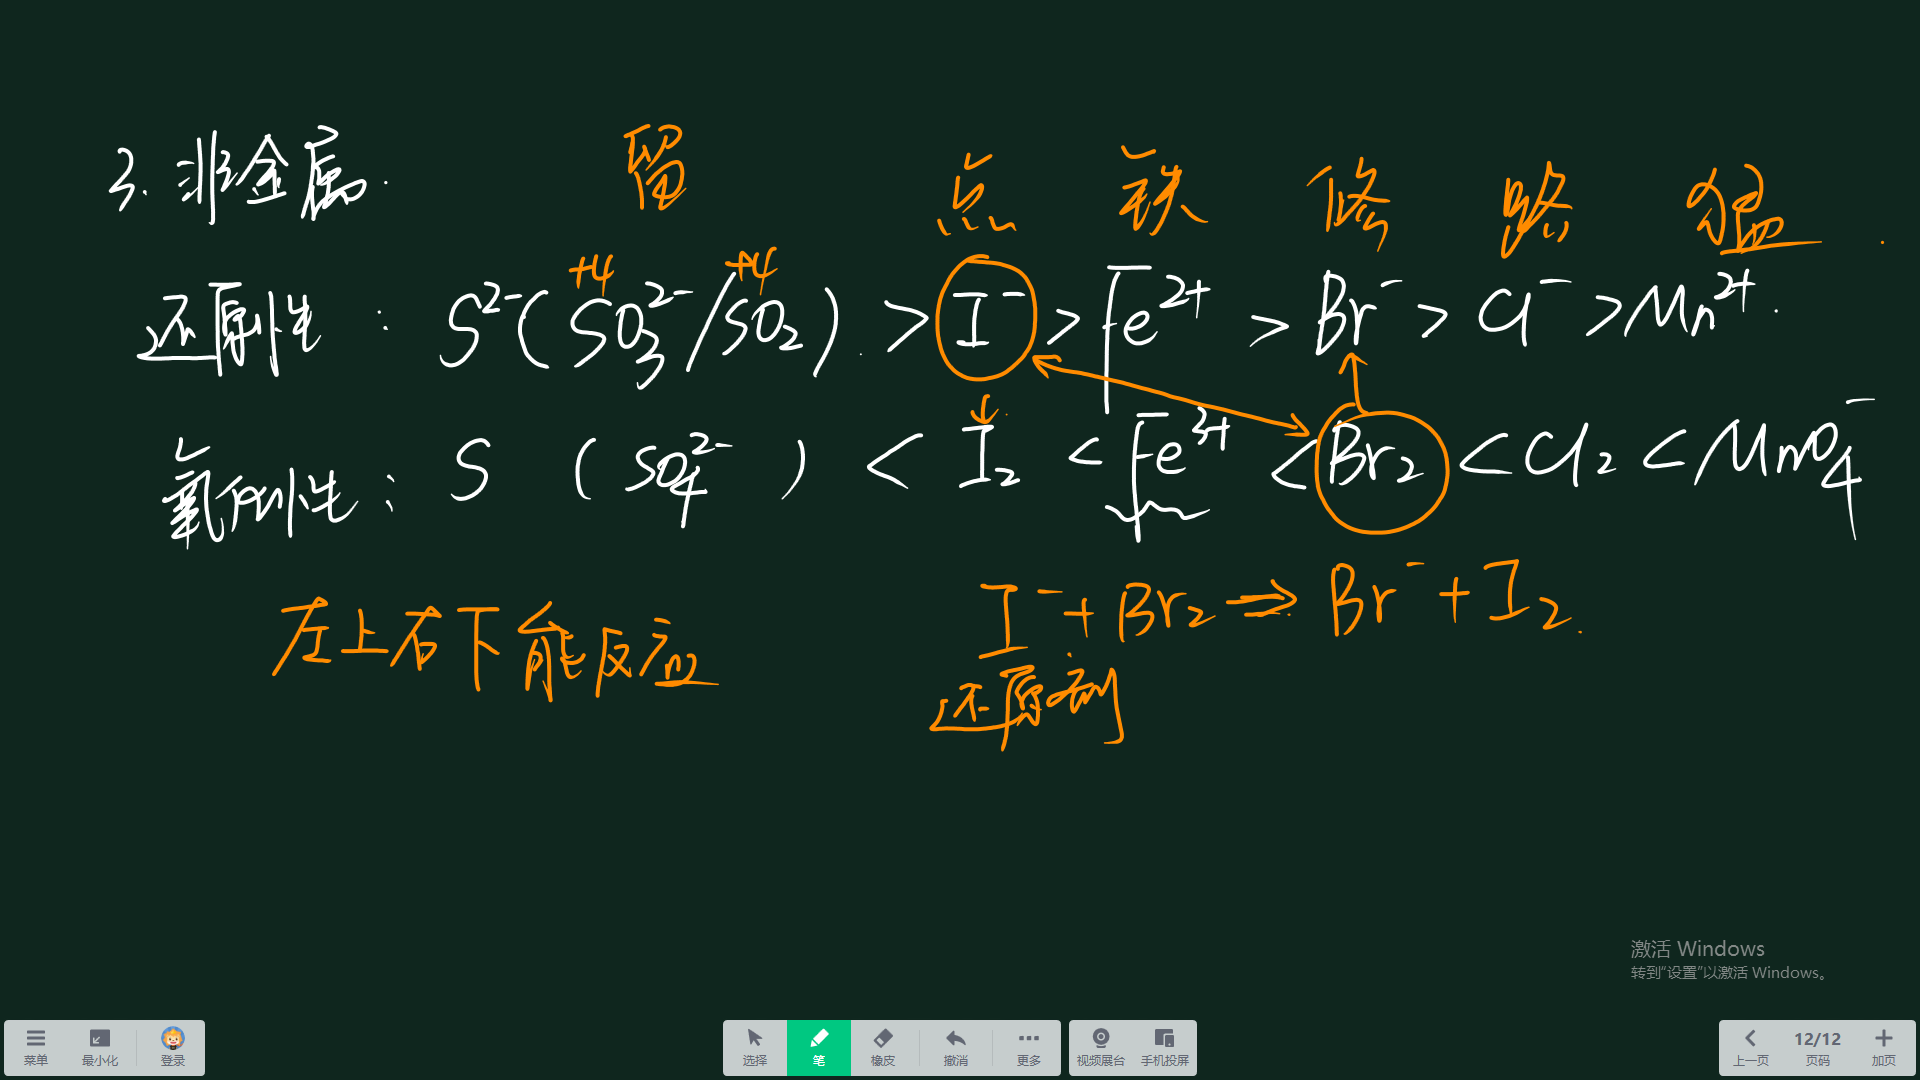 3. 非金属.
留 点 铁 修 路 猛.
+4 +4
还原性: S²⁻(SO₃²⁻/SO₂). > I⁻ > Fe²⁺ > Br⁻ > Cl⁻ > Mn²⁺.
氧化性: S (SO₄²⁻) < I₂ < Fe³⁺ < Br₂ < Cl₂ < MnO₄⁻
左上右下能反应
I⁻ + Br₂ ⇒ Br⁻ + I₂.
还原剂
激活 Windows
转到“设置”以激活 Windows。
菜单 最小化 登录 选择 笔 橡皮 撤消 更多 视频展台 手机投屏 上一页 12/12 页码 加页